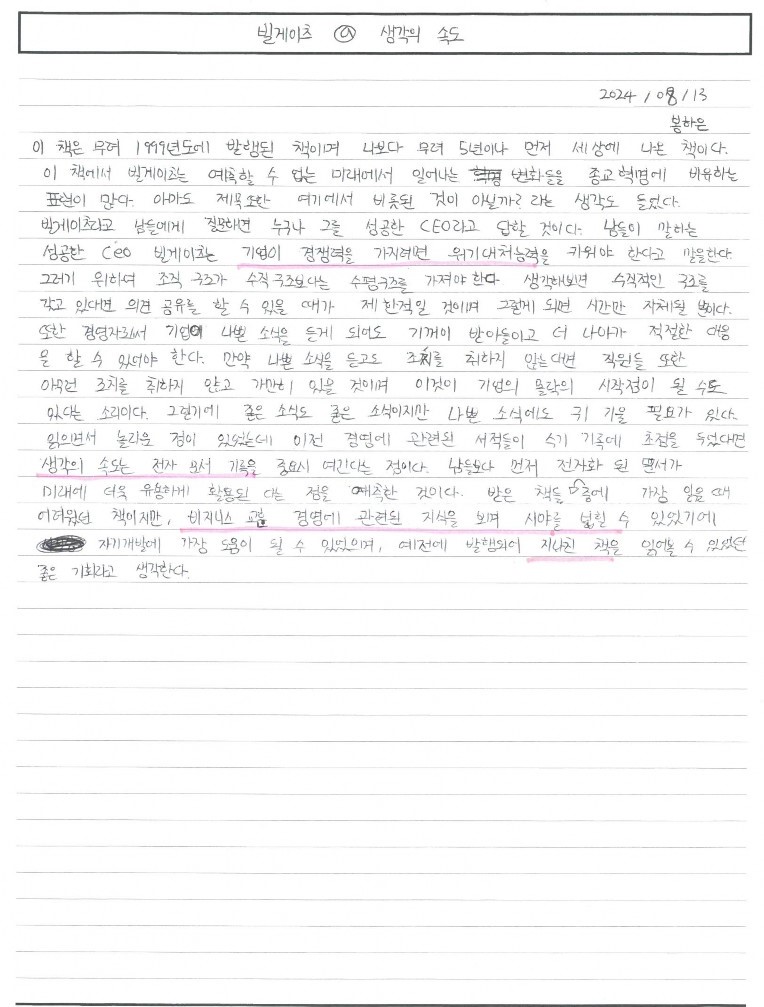 빌게이츠 @ 생각의 속도
2024 / 08 / 13
봉하은
이 책은 무려 1999년도에 발행된 책이며 나보다 무려 5년이나 먼저 세상에 나온 책이다.
이 책에서 빌게이츠는 예측할 수 없는 미래에서 일어나는 변화들을 종교 혁명에 비유하는
표현이 많다. 아마도 제목 또한 여기에서 비롯된 것이 아닐까? 라는 생각도 들었다.
빌게이츠라고 남들에게 질문하면 누구나 그를 성공한 CEO라고 답할 것이다. 남들이 말하는
성공한 CEO 빌게이츠는 기업이 경쟁력을 가지려면 위기대처능력을 키워야 한다고 말을한다.
그러기 위하여 조직 구조가 수직구조보다는 수평구조를 가져야 한다 생각해보면 수직적인 구조를
갖고 있다면 의견 공유를 할 수 있을 때가 제한적일 것이며 그렇게 되면 시간만 지체될 뿐이다.
또한 경영자로서 기업이 나쁜 소식을 듣게 되어도 기꺼이 받아들이고 더 나아가 적절한 대응
을 할 수 있어야 한다. 만약 나쁜 소식을 듣고도 조치를 취하지 않는다면 직원들 또한
아무런 조치를 취하지 않고 가만히 있을 것이며 이것이 기업의 몰락의 시작점이 될 수도
있다는 소리이다. 그렇기에 좋은 소식도 좋은 소식이지만 나쁜 소식에도 귀 기울 필요가 있다.
읽으면서 놀라운 점이 있었는데 이전 경영에 관련된 서적들이 수기 기록에 초점을 두었다면
생각의 속도는 전자 문서 기록을 중요시 여긴다는 점이다. 남들보다 먼저 전자화 된 문서가
미래에 더욱 유용하게 활용된 다는 점을 예측한 것이다. 받은 책들 중에 가장 읽을 때
어려웠던 책이지만, 비지니스 경영에 관련된 지식을 보며 시야를 넓힐 수 있었기에
자기개발에 가장 도움이 될 수 있었으며, 예전에 발행되어 지나친 책을 읽어볼 수 있었던
좋은 기회라고 생각한다.